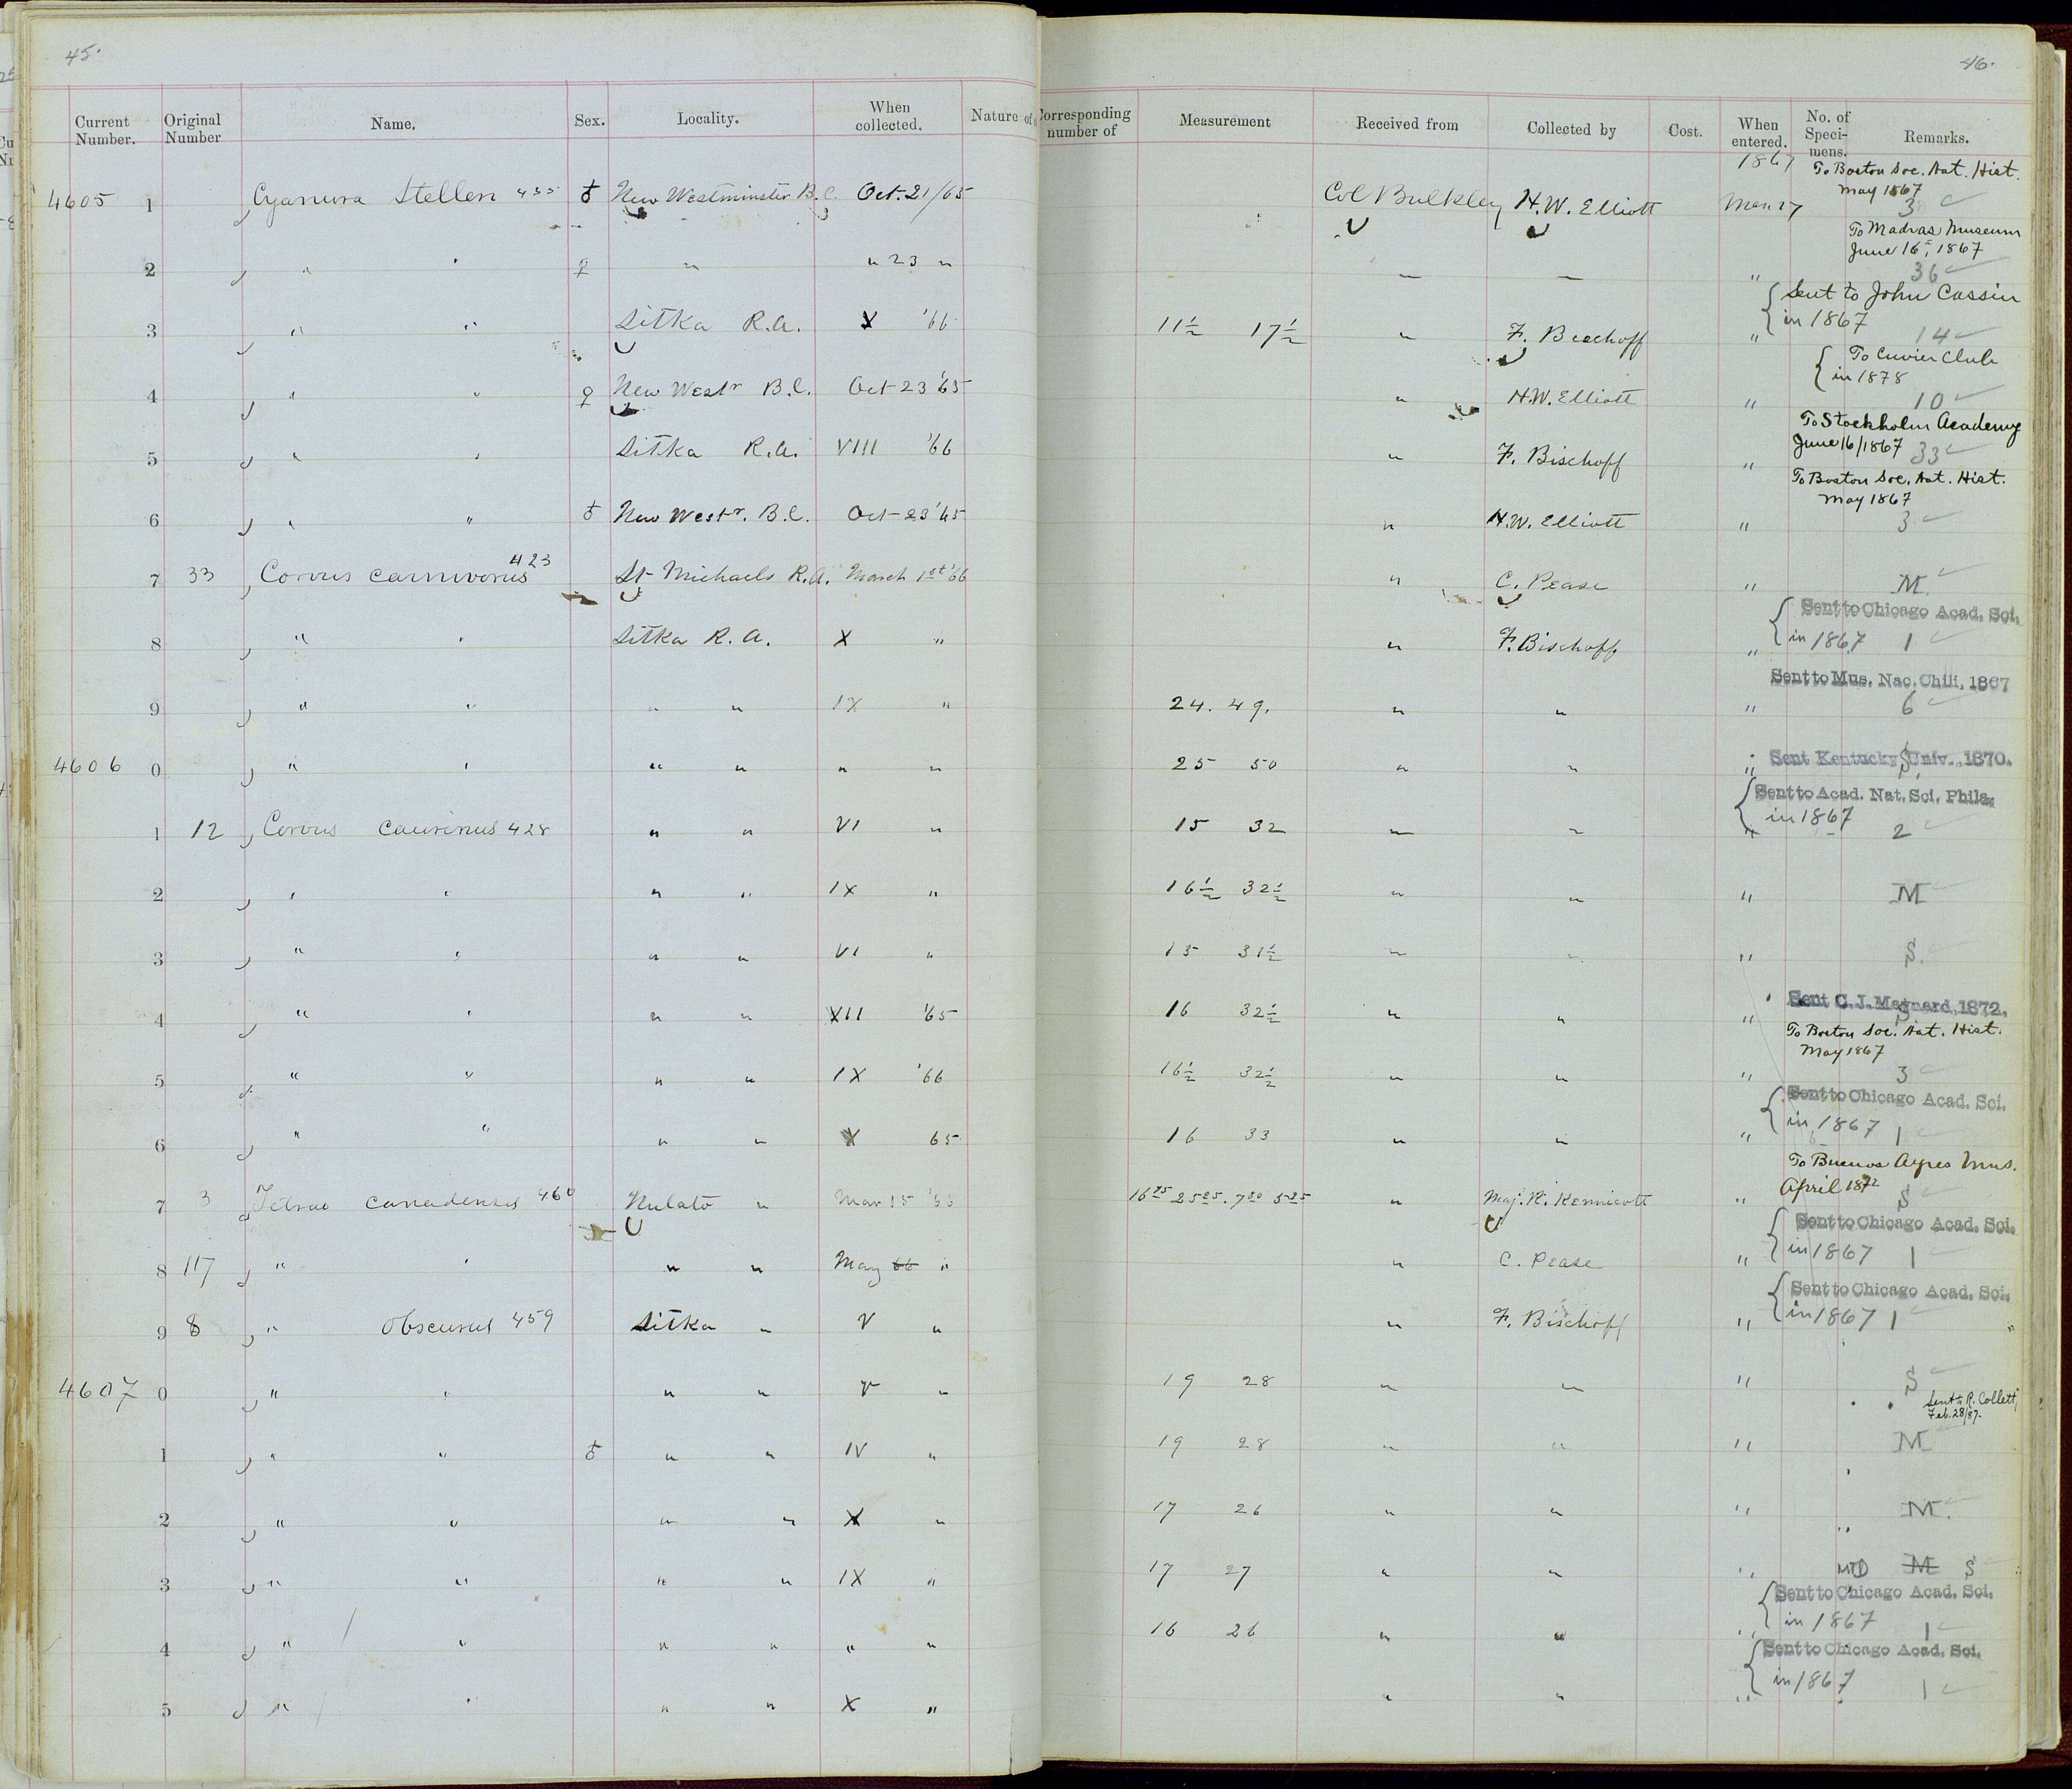 45.
46.
Current Number. Original Number Name. Sex. Locality. When collected. Nature of Corresponding number of Measurement Received from Collected by Cost. When entered. No. of Specimens. Remarks.
1867 To Boston Soc. Nat. Hist.
May 1867
4605 1 Cyanura Stelleri 435 ♂ New Westminster B.C. Oct. 21/65 Col Bulkley H.W. Elliott Mar 27 3
To Madras Museum
June 16, 1867
2 " " ♀ " " 23 " — — " 36
Sent to John Cassin
in 1867
3 " " Sitka R.A. X '66 11½ 17½ " F. Bischoff " 14
To Cuvier Club
in 1878
4 " " ♀ New Westr B.C. Oct 23 '65 " H.W. Elliott " 10
To Stockholm Academy
June 16/1867
5 " " Sitka R.A. VIII '66 " F. Bischoff " 33
To Boston Soc. Nat. Hist.
May 1867
6 " " ♂ New Westr. B.C. Oct 23 '65 " H.W. Elliott " 3
7 33 Corvus carnivorus 423 St Michaels R.A. March 1st '66 " C. Pease " M.
Sent to Chicago Acad. Sci.
8 " " Sitka R.A. X " " F. Bischoff " in 1867 1
Sent to Mus. Nac. Chili, 1867
9 " " " " IX " 24. 49. " " " 6
4606 0 " " " " " " 25 50 " " " Sent Kentucky Univ. 1870. S
Sent to Acad. Nat. Sci. Phila.
in 1867
1 12 Corvus caurinus 428 " " VI " 15 32 " " " 2
2 " " " " IX " 16½ 32½ " " " M
3 " " " " VI " 15 31½ " " " S.
Sent C. J. Maynard, 1872.
4 " " " " XII '65 16 32½ " " " S
To Boston Soc. Nat. Hist.
May 1867
5 " " " " IX '66 16½ 32½ " " " 3
Sent to Chicago Acad. Sci.
6 " " " " X 65 16 33 " " " in 1867 1
To Buenos Ayres Mus.
April 1872
7 3 Tetrao canadensis 460 Nulato " Mar 15 '66 16 75 25 25. 7 20 5 25 " Maj. R. Kennicott " S
Sent to Chicago Acad. Sci.
8 117 " " " " May 66 " " C. Pease " in 1867 1
Sent to Chicago Acad. Sci.
9 8 " obscurus 459 Sitka " V " " F. Bischoff " in 1867 1
4607 0 " " " " V " 19 28 " " " S
Sent to R. Collett,
Feb. 28/87.
1 " " ♂ " " IV " 19 28 " " " M
2 " " " " X " 17 26 " " " M.
3 " " " " IX " 17 27 " " " M S
Sent to Chicago Acad. Sci.
4 " " " " " " 16 26 " " " in 1867 1
Sent to Chicago Acad. Sci.
5 " " " " X " " " " in 1867 1